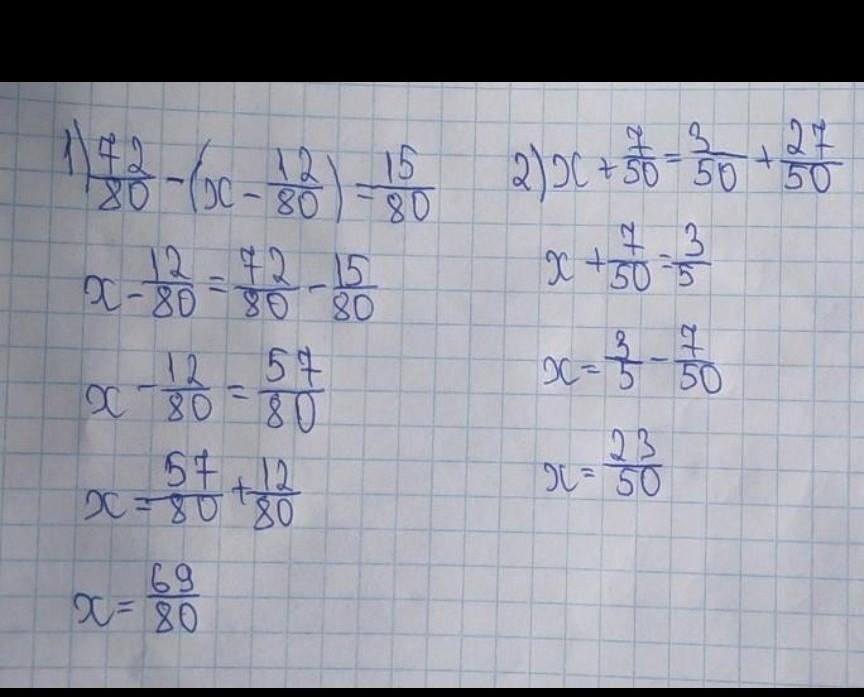 1) 72/80 - (x - 12/80) = 15/80
x - 12/80 = 72/80 - 15/80
x - 12/80 = 57/80
x = 57/80 + 12/80
x = 69/80
2) x + 7/50 = 3/50 + 27/50
x + 7/50 = 3/5
x = 3/5 - 7/50
x = 23/50